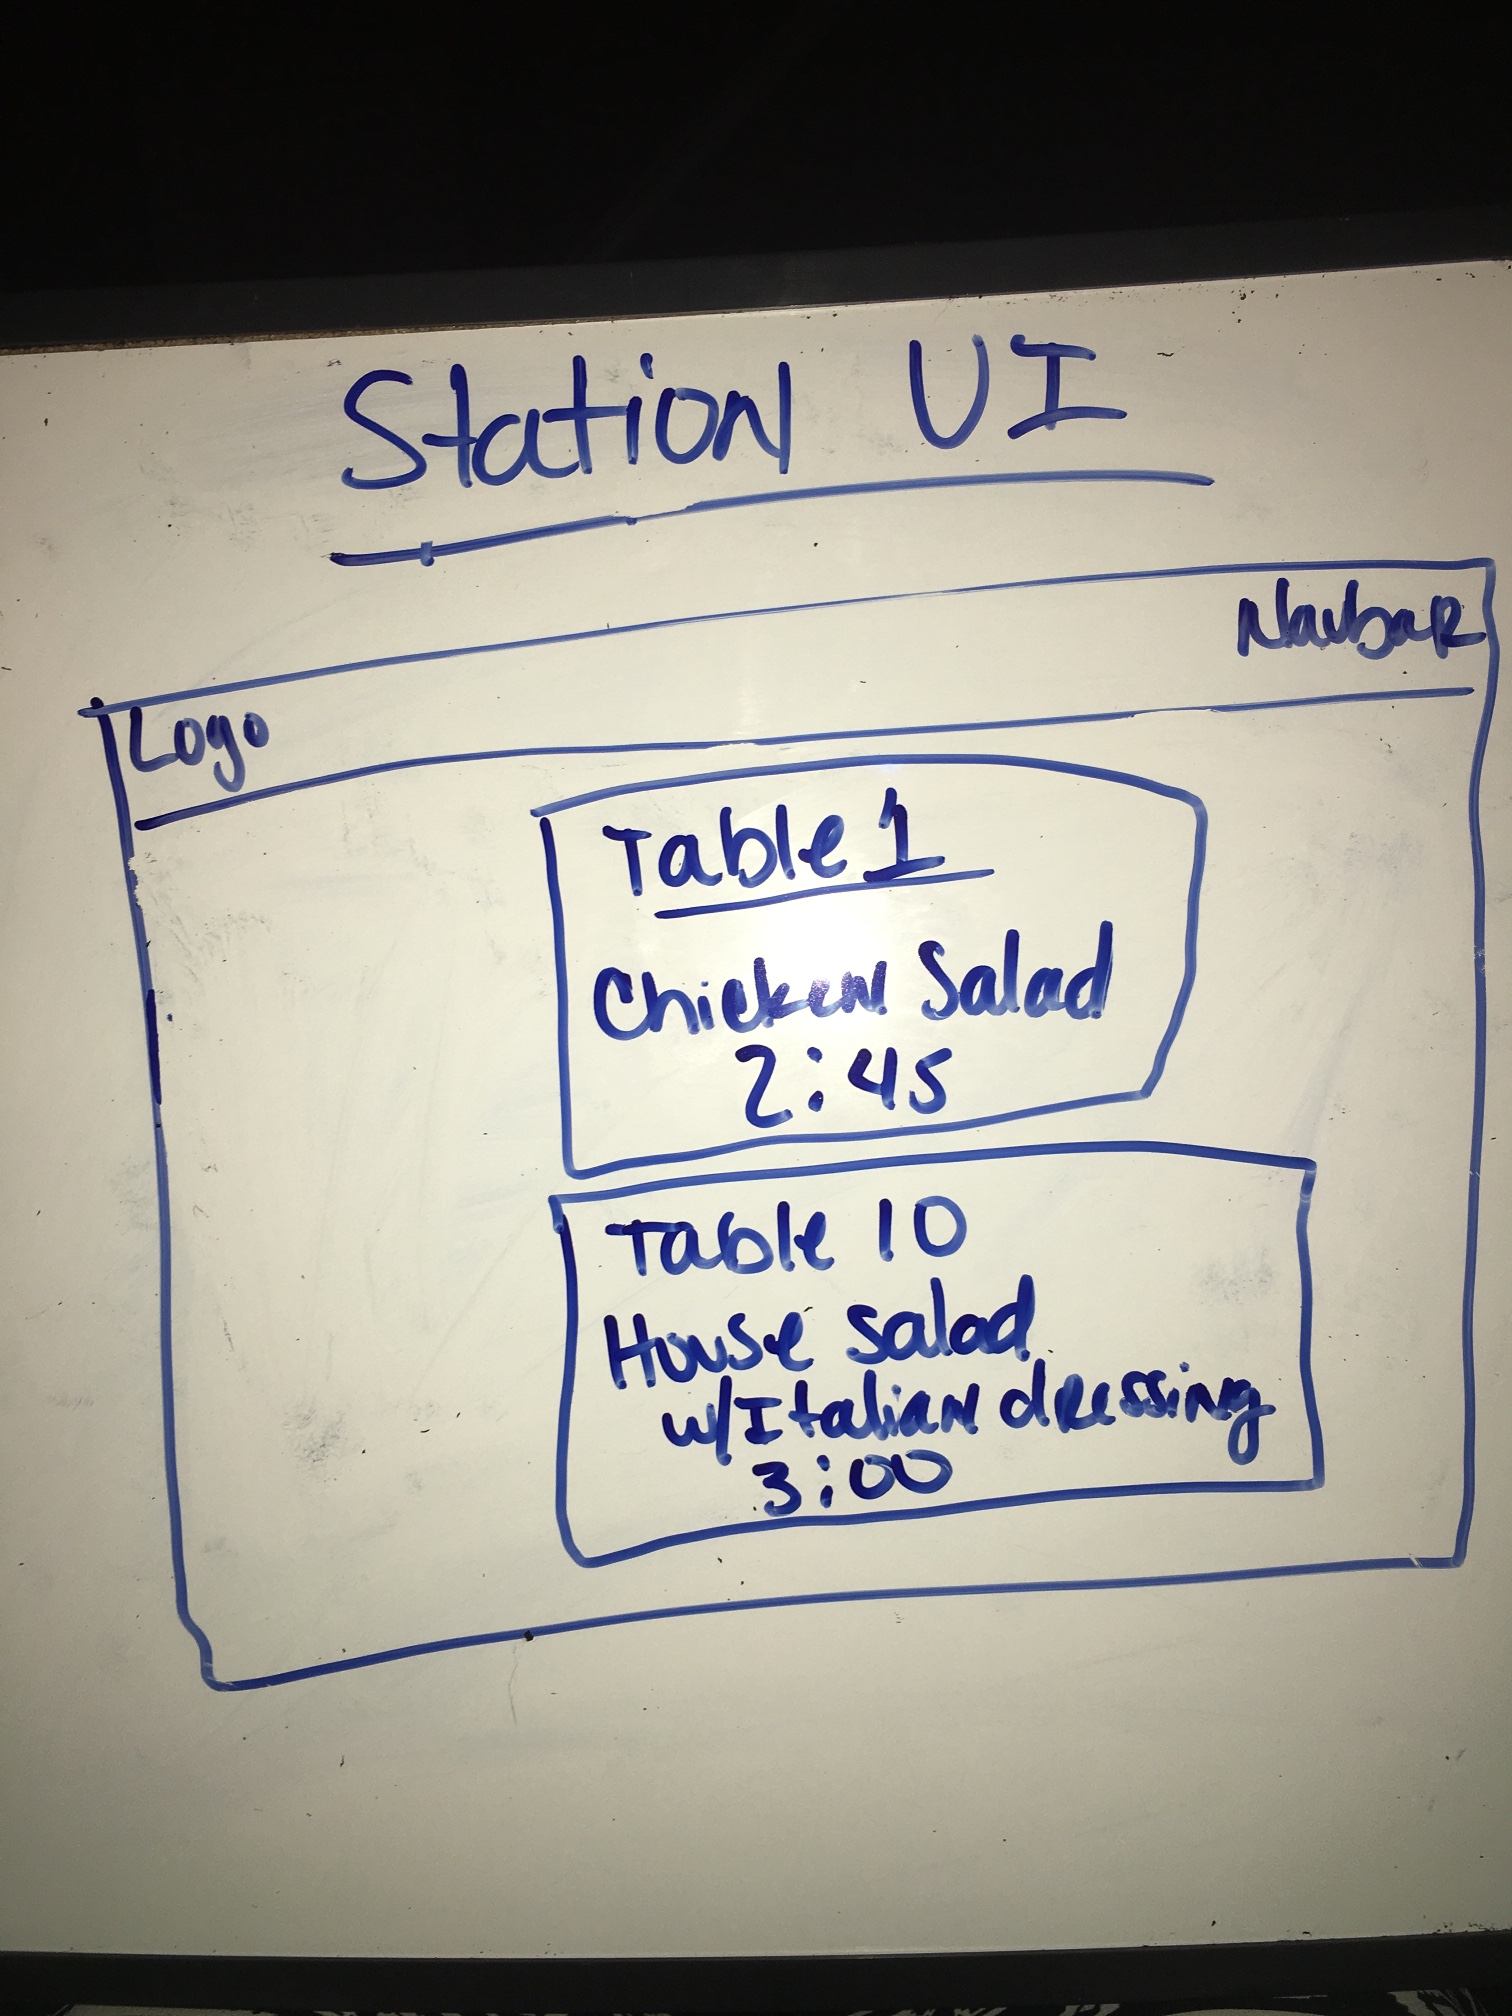 Station UI
Navbar
Logo
Table 1
Chicken Salad
2:45
Table 10
House salad
w/Italian dressing
3:00